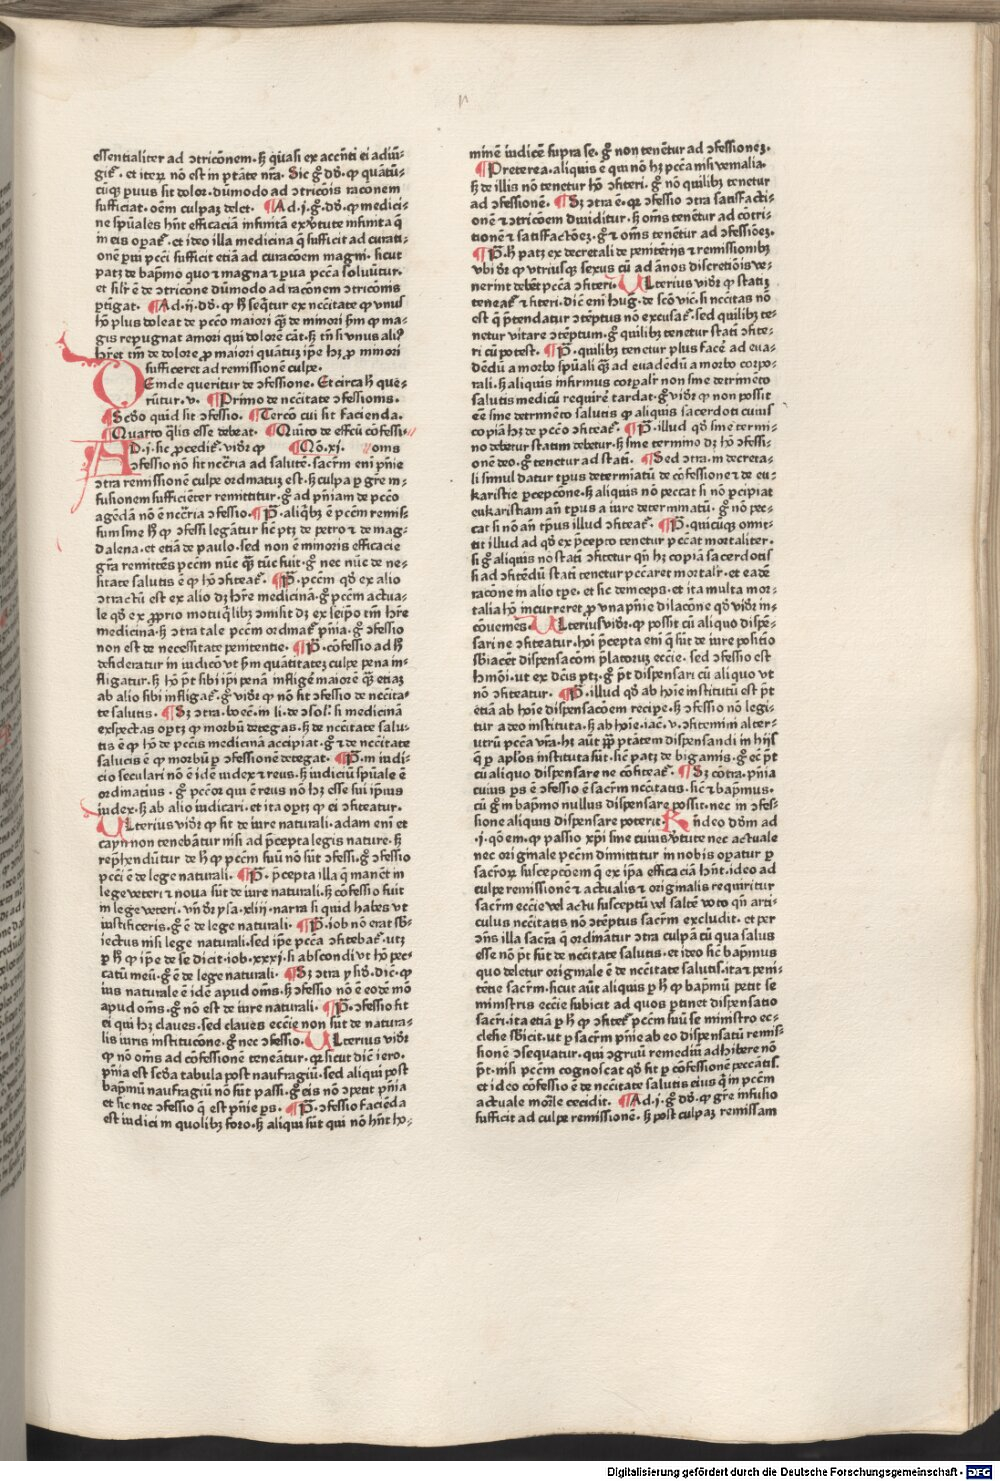 essentialiter ad ɔtricōnem. s̄ quasi ex accn̄ti ei adiū-
git᷑. et iteꝝ nō est in ptāte nr̄a. Sic gͦ dō. ꝙ quātū-
cūqꝫ puus sit dolor. dūmodo ad ɔtricōis raconem
sufficiat. oēm culpaꝫ delet. ¶ Ad .j. gͦ. dō. ꝙ medici-
ne spūales hn̄t efficaciā infinitā ex v̓tute infinita q̄
in eis opat᷑. et ideo illa medicina q̄ sufficit ad curati-
onē pui pccī sufficit etiā ad curacōem magni. sicut
patꝫ de bapmo quo ⁊ magna ⁊ pua pccā soluūtur.
et silr̄ ē de ɔtricōne dūmodo ad raconem ɔtricōnis
ptīgat. ¶ Ad .ij. dō. ꝙ h̄ seq̄tur ex nccītate ꝙ vnus
hō plus doleat de pccō maiori q̄ꝫ de minori sm̄ ꝙ ma-
gis repugnat amori qui dolorē cāt. s̄ tn̄ si vnus aliꝰ
hr̄et tm̄ de dolore ꝓ maiori quātuꝫ ipe hꝫ ꝓ minori
sufficeret ad remissionē culpe.
QEinde queritur de ɔfessione. Et circa h̄ que-
rūtur .v. ¶ Primo de nccītate ɔfessionis.
¶ Scd̄o quid sit ɔfessio. ¶ Tercō cui sit facienda.
¶ Quarto q̄lis esse debeat. ¶ Quīto de effcū cōfessi-
AD .j. sic ꝓcedit᷑. vid̄r ꝙ ¶ Qō .xj. onis
ɔfessio nō sit ncc̄ria ad salutē. sacrm̄ eni pn̄ie
ɔtra remissionē culpe ordinatuꝫ est. s̄ culpa p gr̄e in-
fusionem sufficiēter remittitur. gͦ ad pn̄iam de pccō
agēdā nō ē ncc̄ria ɔfessio. ¶ P̄. aliq̄bꝫ ē pccm̄ remis-
sum sine h̄ ꝙ ɔfessi legātur sic ptꝫ de petro ⁊ de mag-
dalena. et etiā de paulo. sed non ē minoris efficacie
gr̄a remittēs pccm̄ nūc q̄ꝫ tūc fuit. gͦ nec nūc de ne-
sitate salutis ē ꝙ hō ɔfiteat᷑. ¶ P̄. pccm̄ qd̄ ex alio
ɔtractū est ex alio dꝫ hr̄e medicinā. gͦ pccm̄ actua-
le qd̄ ex ꝓprio motu q̄libꝫ ɔmisit dꝫ ex seipō tm̄ hr̄e
medicinā. s̄ ɔtra tale pccm̄ ordinat᷑ pn̄ia. gͦ ɔfessio
non est de necessitate penitentie. ¶ P̄. cōfessio ad h̄
desideratur in iudicō vt sm̄ quātitateꝫ culpe pena in-
fligatur. s̄ hō pt̄ sibi ipi penā infligē maiorē q̄ꝫ etiaꝫ
ab alio sibi infligat᷑. gͦ vid̄r ꝙ nō sit ɔfessio de nccīta-
te salutis. ¶ Sꝫ ɔtra. boec. in li. de ɔsol. si medicinā
exspectas optꝫ ꝙ morbū detegas. s̄ de nccītate salu-
tis ē ꝙ hō de pccīs medicinā accipiat. gͦ ⁊ de nccītate
salutis ē ꝙ morbū p ɔfessionē detegat. ¶ P̄. in iudi-
cio seculari nō ē idē iudex ⁊ reus. s̄ iudiciū spūale ē
ordinatius. gͦ pccōr qui ē reus nō hꝫ esse sui ipius
iudex. s̄ ab alio iudicari. et ita optꝫ ꝙ ei ɔfiteatur.
Vlterius vid̄r ꝙ sit de iure naturali. adam eni et
cayn non tenebātur nisi ad pcepta legis nature. s̄
rep̄hēdūtur de h̄ ꝙ pccm̄ suū nō sūt ɔfessi. gͦ ɔfessio
pccī ē de lege naturali. ¶ P̄. pcepta illa q̄ manēt in
lege veteri ⁊ noua sūt de iure naturali. s̄ cōfessio fuit
in lege veteri. vn̄ dr̄ ysa. xliij. narra si quid habes vt
iustificeris. gͦ ē de lege naturali. ¶ P̄. iob nō erat sb̄-
iectus nisi lege naturali. sed ipe pccā ɔfitebat᷑. vtꝫ
p h̄ ꝙ ipe de se dicit. iob. xxxj. si abscondi vt hō pec-
catū meū. gͦ ē de lege naturali. ¶ Sꝫ ɔtra ysid. dic̄. ꝙ
ius naturale ē idē apud om̄s. s̄ ɔfessio nō ē eodē mō
apud om̄s. gͦ nō est de iure naturali. ¶ P̄. ɔfessio fit
ei qui hꝫ claues. sed claues eccīe non sūt de natura-
lis iuris institucōne. gͦ nec ɔfessio. Vlterius vid̄r
ꝙ nō om̄s ad cōfessionē teneātur. qꝛ sicut dic̄ iero.
pn̄ia est scd̄a tabula post naufragiū. sed aliqui post
bapmū naufragiū nō sūt passi. gͦ eis nō ɔpetit pn̄ia
et sic nec ɔfessio q̄ est pn̄ie ps. ¶ P̄. ɔfessio facienda
est iudici in quolibꝫ foro. s̄ aliqui sūt qui nō hn̄t ho-
minē iudicē supra se. gͦ non tenētur ad ɔfessioneꝫ.
¶ Preterea. aliquis ē qui nō hꝫ pccā nisi venialia.
s̄ de illis nō tenetur hō ɔfiteri. gͦ nō quilibꝫ tenetur
ad ɔfessionē. ¶ Sꝫ ɔtra ē. qꝛ ɔfessio ɔtra satisfacti-
onē ⁊ ɔtricōem diuiditur. s̄ om̄s tenētur ad cōtri-
tionē ⁊ satisfactōeꝫ. gͦ ⁊ om̄s tenētur ad ɔfessiōeꝫ.
¶ P̄. h̄ patꝫ ex decretali de penitētijs ⁊ remissionibꝫ
vbi dr̄ ꝙ vtriusqꝫ sexus cū ad ānos discretiōis ve-
nerint debēt pccā ɔfiteri. Vlterius vid̄r ꝙ statiꝫ
teneat᷑ ɔfiteri. dic̄ eni hug̓. de sc̄o vic̄. si nccītas nō
est q̄ ptendatur ɔtēptus nō excusat᷑. sed quilibꝫ te-
netur vitare ɔtēptum. gͦ quilibꝫ tenetur statī ɔfite-
ri cū potest. ¶ P̄. quilibꝫ tenetur plus facē ad eua-
dēdū a morbo spūali q̄ꝫ ad euadēdū a morbo corpo-
rali. s̄ aliquis infirmus corpalr̄ non sine detrimēto
salutis medicū requirē tardat. gͦ vid̄r ꝙ non possit
eē sine detrimēto salutis ꝙ aliquis sacerdoti cuius
copiā hꝫ de pccō ɔfiteat᷑. ¶ P̄. illud qd̄ sine termi-
no debetur statim debetur. s̄ sine termino dꝫ hō ɔfessi-
onē deo. gͦ tenetur ad statī. ¶ Sed ɔtra. in decreta-
li simul datur tpus determīatū de cōfessione ⁊ de eu-
karistie pcepcōne. s̄ aliquis nō peccat si nō pcipiat
eukaristiam an̄ tpus a iure determinatū. gͦ nō pec-
cat si nō an̄ tpus illud ɔfiteat᷑. ¶ P̄. quicūqꝫ omit-
tit illud ad qd̄ ex pcepto tenetur peccat mortaliter.
si gͦ aliquis nō statī ɔfitetur qn̄ hꝫ copiā sacerdotis
si ad ɔfitēdū statī tenetur peccaret mortalr̄. et eadē
racōne in alio tpe. et sic deinceps. et ita multa mor-
talia hō incurreret ꝓ vna pn̄ie dilacōne qd̄ vid̄r in-
cōueniēs. Vlterius vid̄r. ꝙ possit cū aliquo dispē-
sari ne ɔfiteatur. hoi pcepta eni q̄ sūt de iure positiō
sb̄iacēt dispensacōni platorꝫ eccīe. sed ɔfessio est
hmōi. vt ex dcīs ptꝫ. gͦ pt̄ dispensari cū aliquo vt
nō ɔfiteatur. ¶ P̄. illud qd̄ ab hoie institutū est pt̄
etiā ab hoie dispensacōem recipe. s̄ ɔfessio nō legi-
tur a deo instituta. s̄ ab hoie. iac̄. v. ɔfitemini alter-
utrū pccā vr̄a. hꝫ aūt pp̄ ptātem dispensandi in hijs
q̄ p aplos instituta sūt. sic patꝫ de bigamis. gͦ eē pt̄
cū aliquo dispensare ne cōfiteat᷑. ¶ Sꝫ cōtra. pn̄ia
cuius ps ē ɔfessio ē sacrm̄ nccītatis. sic ⁊ bapmus.
cū gͦ in bapmo nullus dispensare possit. nec in ɔfes-
sione aliquis dispensare poterit. Rn̄deo dōm ad
.j. qō em. ꝙ passio xpi sine cuius v̓tute nec actuale
nec originale pccm̄ dimittitur in nobis opatur p
sacroꝝ susceptōem q̄ ex ipa efficaciā hn̄t. ideo ad
culpe remissionē ⁊ actualis ⁊ originalis requiritur
sacrm̄ eccīe vel actu susceptū vel saltē voto qn̄ arti-
culus nccītatis nō ɔtēptus sacrm̄ excludit. et per
ɔn̄s illa sacr̄a q̄ ordināntur ɔtra culpā cū qua salus
esse nō pt̄ sūt de nccītate salutis. et ideo sic bapmus
quo deletur originale ē de nccītate salutis. ita ⁊ peni-
tētie sacrm̄. sicut aūt aliquis p h̄ ꝙ bapmū petit se
ministris eccīe subicit ad quos ptinet dispensatio
sacri. ita etiā p h̄ ꝙ ɔfitet᷑ pccm̄ suū se ministro ec-
clesie sb̄icit. vt p sacrm̄ pn̄ie ab eo dispensatū remis-
sionē ɔsequatur. qui ɔgruū remediū adhibere nō
pt̄. nisi pccm̄ cognoscat qd̄ fit p cōfessionē peccātis.
et ideo cōfessio ē de nccītate salutis eius q̄ in pccm̄
actuale mor̄le cecidit. ¶ Ad .j. gͦ dō. ꝙ gr̄e infusio
sufficit ad culpe remissionē. s̄ post culpaꝫ remissam
Digitalisierung gefördert durch die Deutsche Forschungsgemeinschaft - DFG